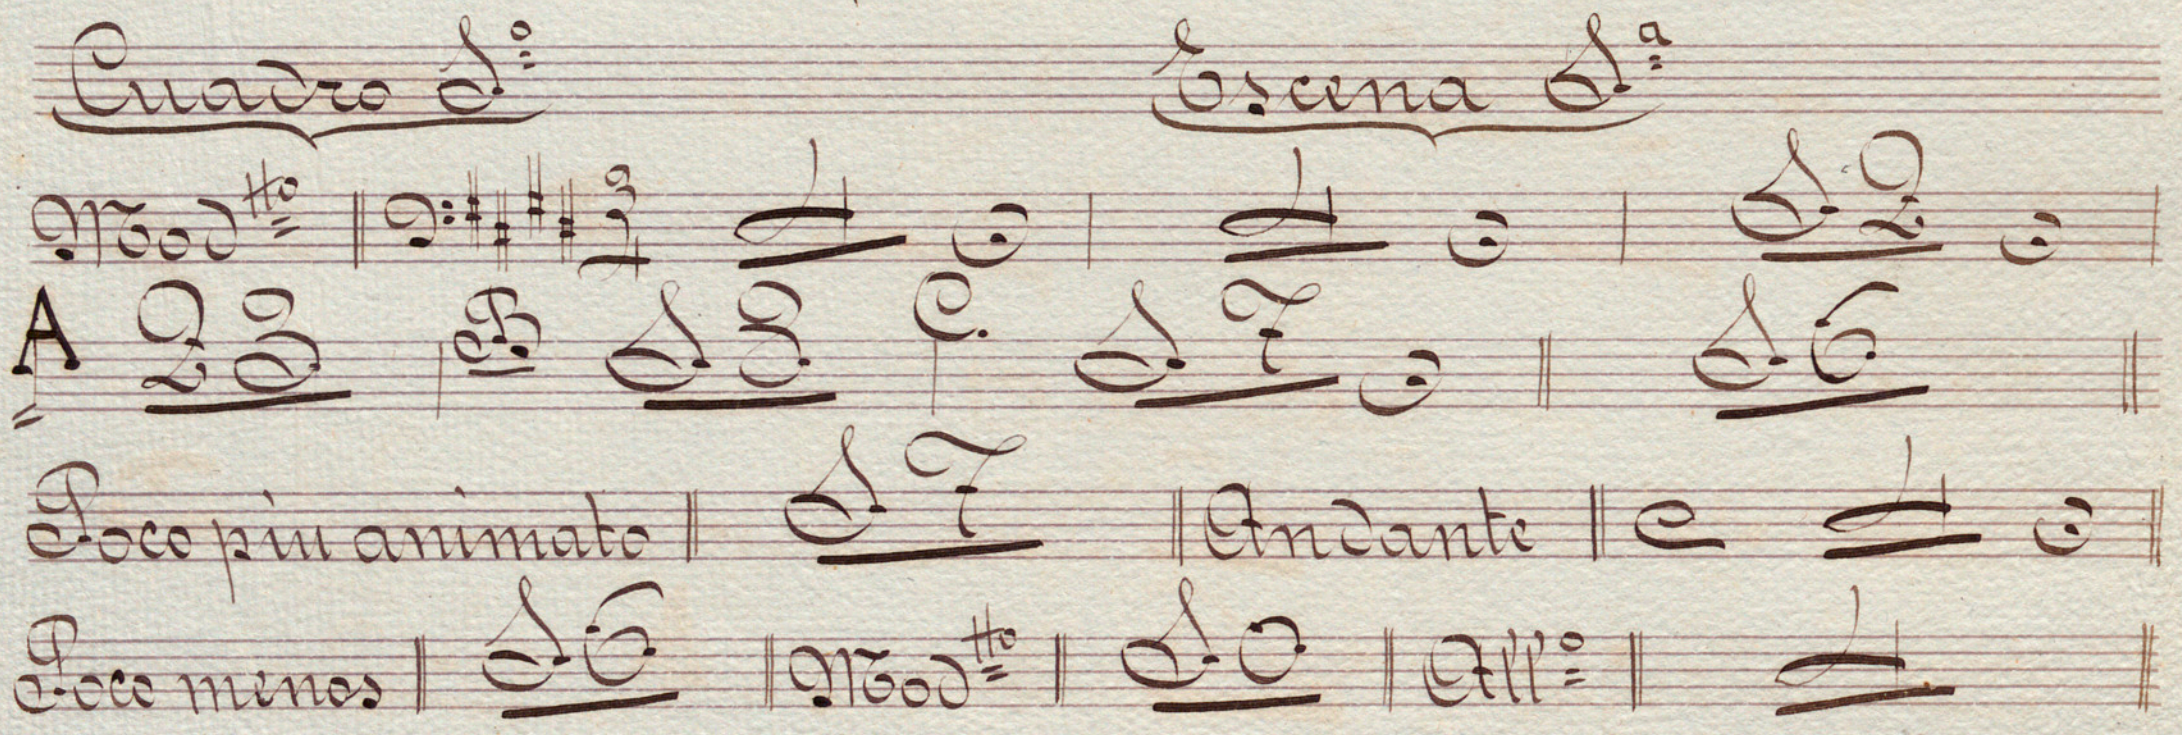 Cuadro 1.º Escena 1.ª
Modtto 3/4 4 4 12
A 23 B 13 C. 17 16
Poco piu animato 17 Andante C 4
Poco menos 16 Modtto 10 Allº 4